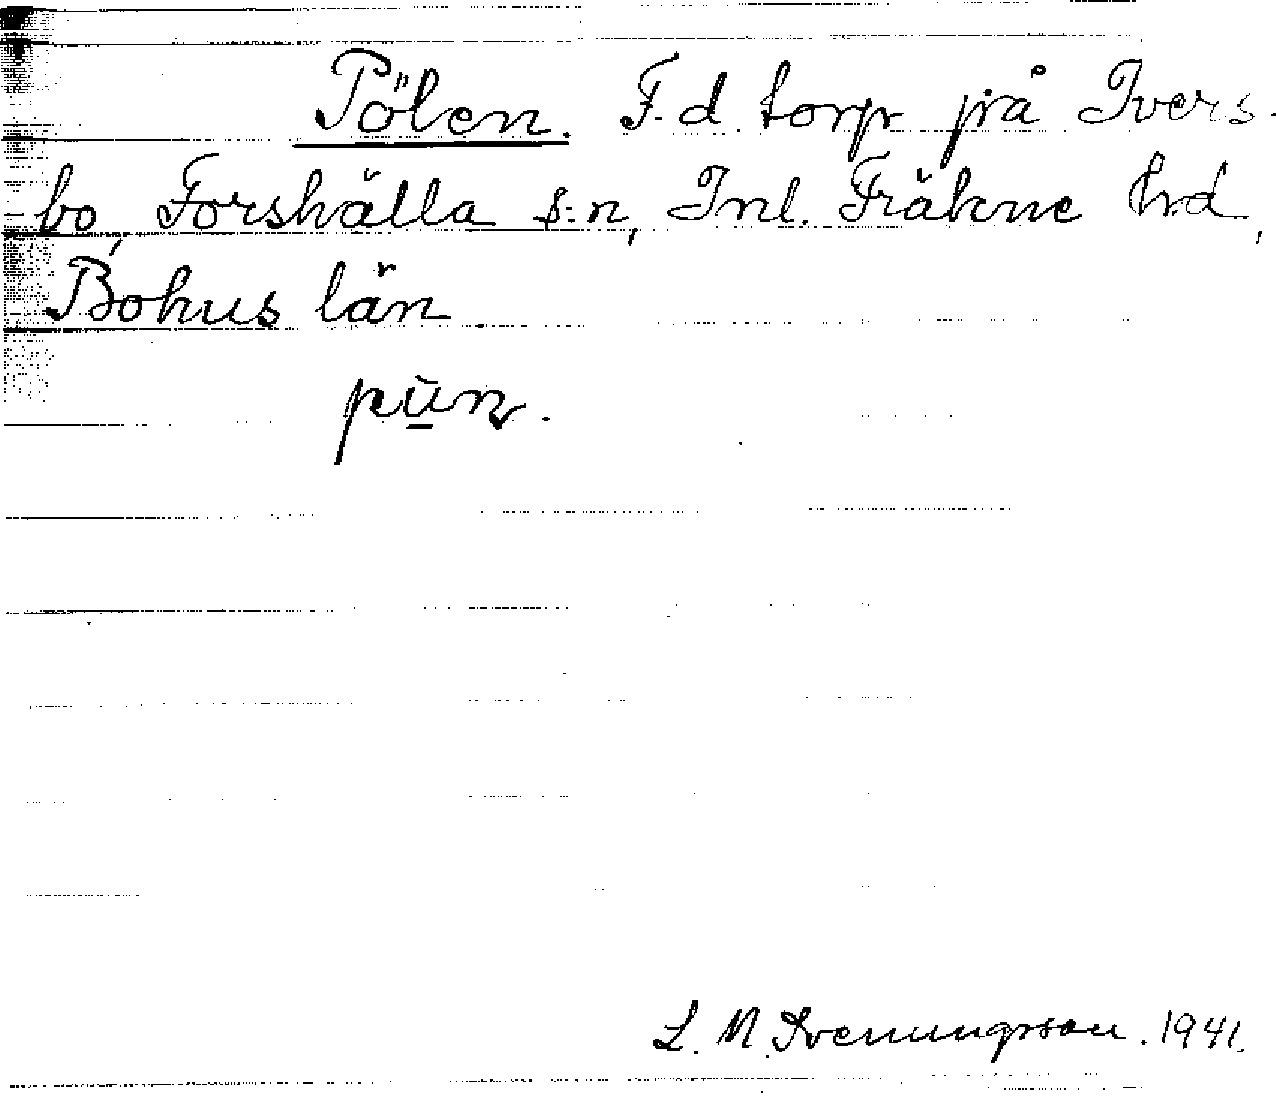 Pölen. F.d. torp på Ivers-
bo, Forshälla s:n, Inl. Fräkne hd,
Bohus län
pün.
L. M. Svenungsson. 1941.